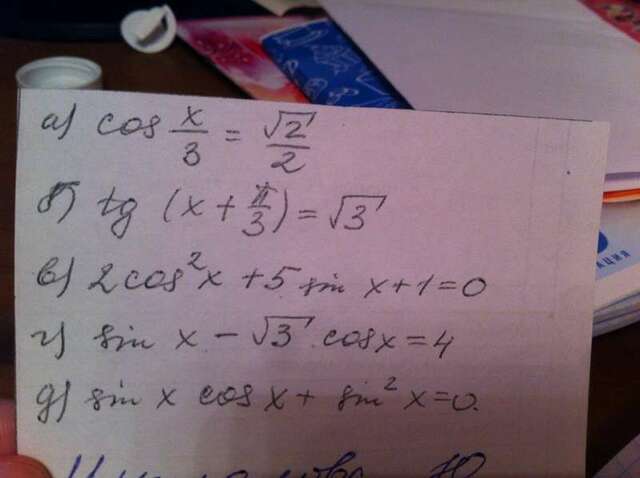 а) cos x/3 = √2/2
б) tg (x + π/3) = √3
в) 2cos²x + 5 sin x + 1 = 0
г) sin x - √3 cosx = 4
д) sin x cos x + sin² x = 0.